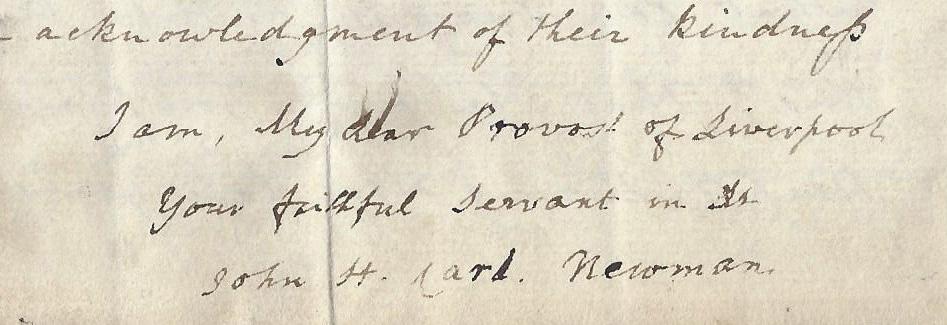 - acknowledgment of their kindness
I am, My dear Provost of Liverpool
Your faithful Servant in Xt
John H. Card. Newman